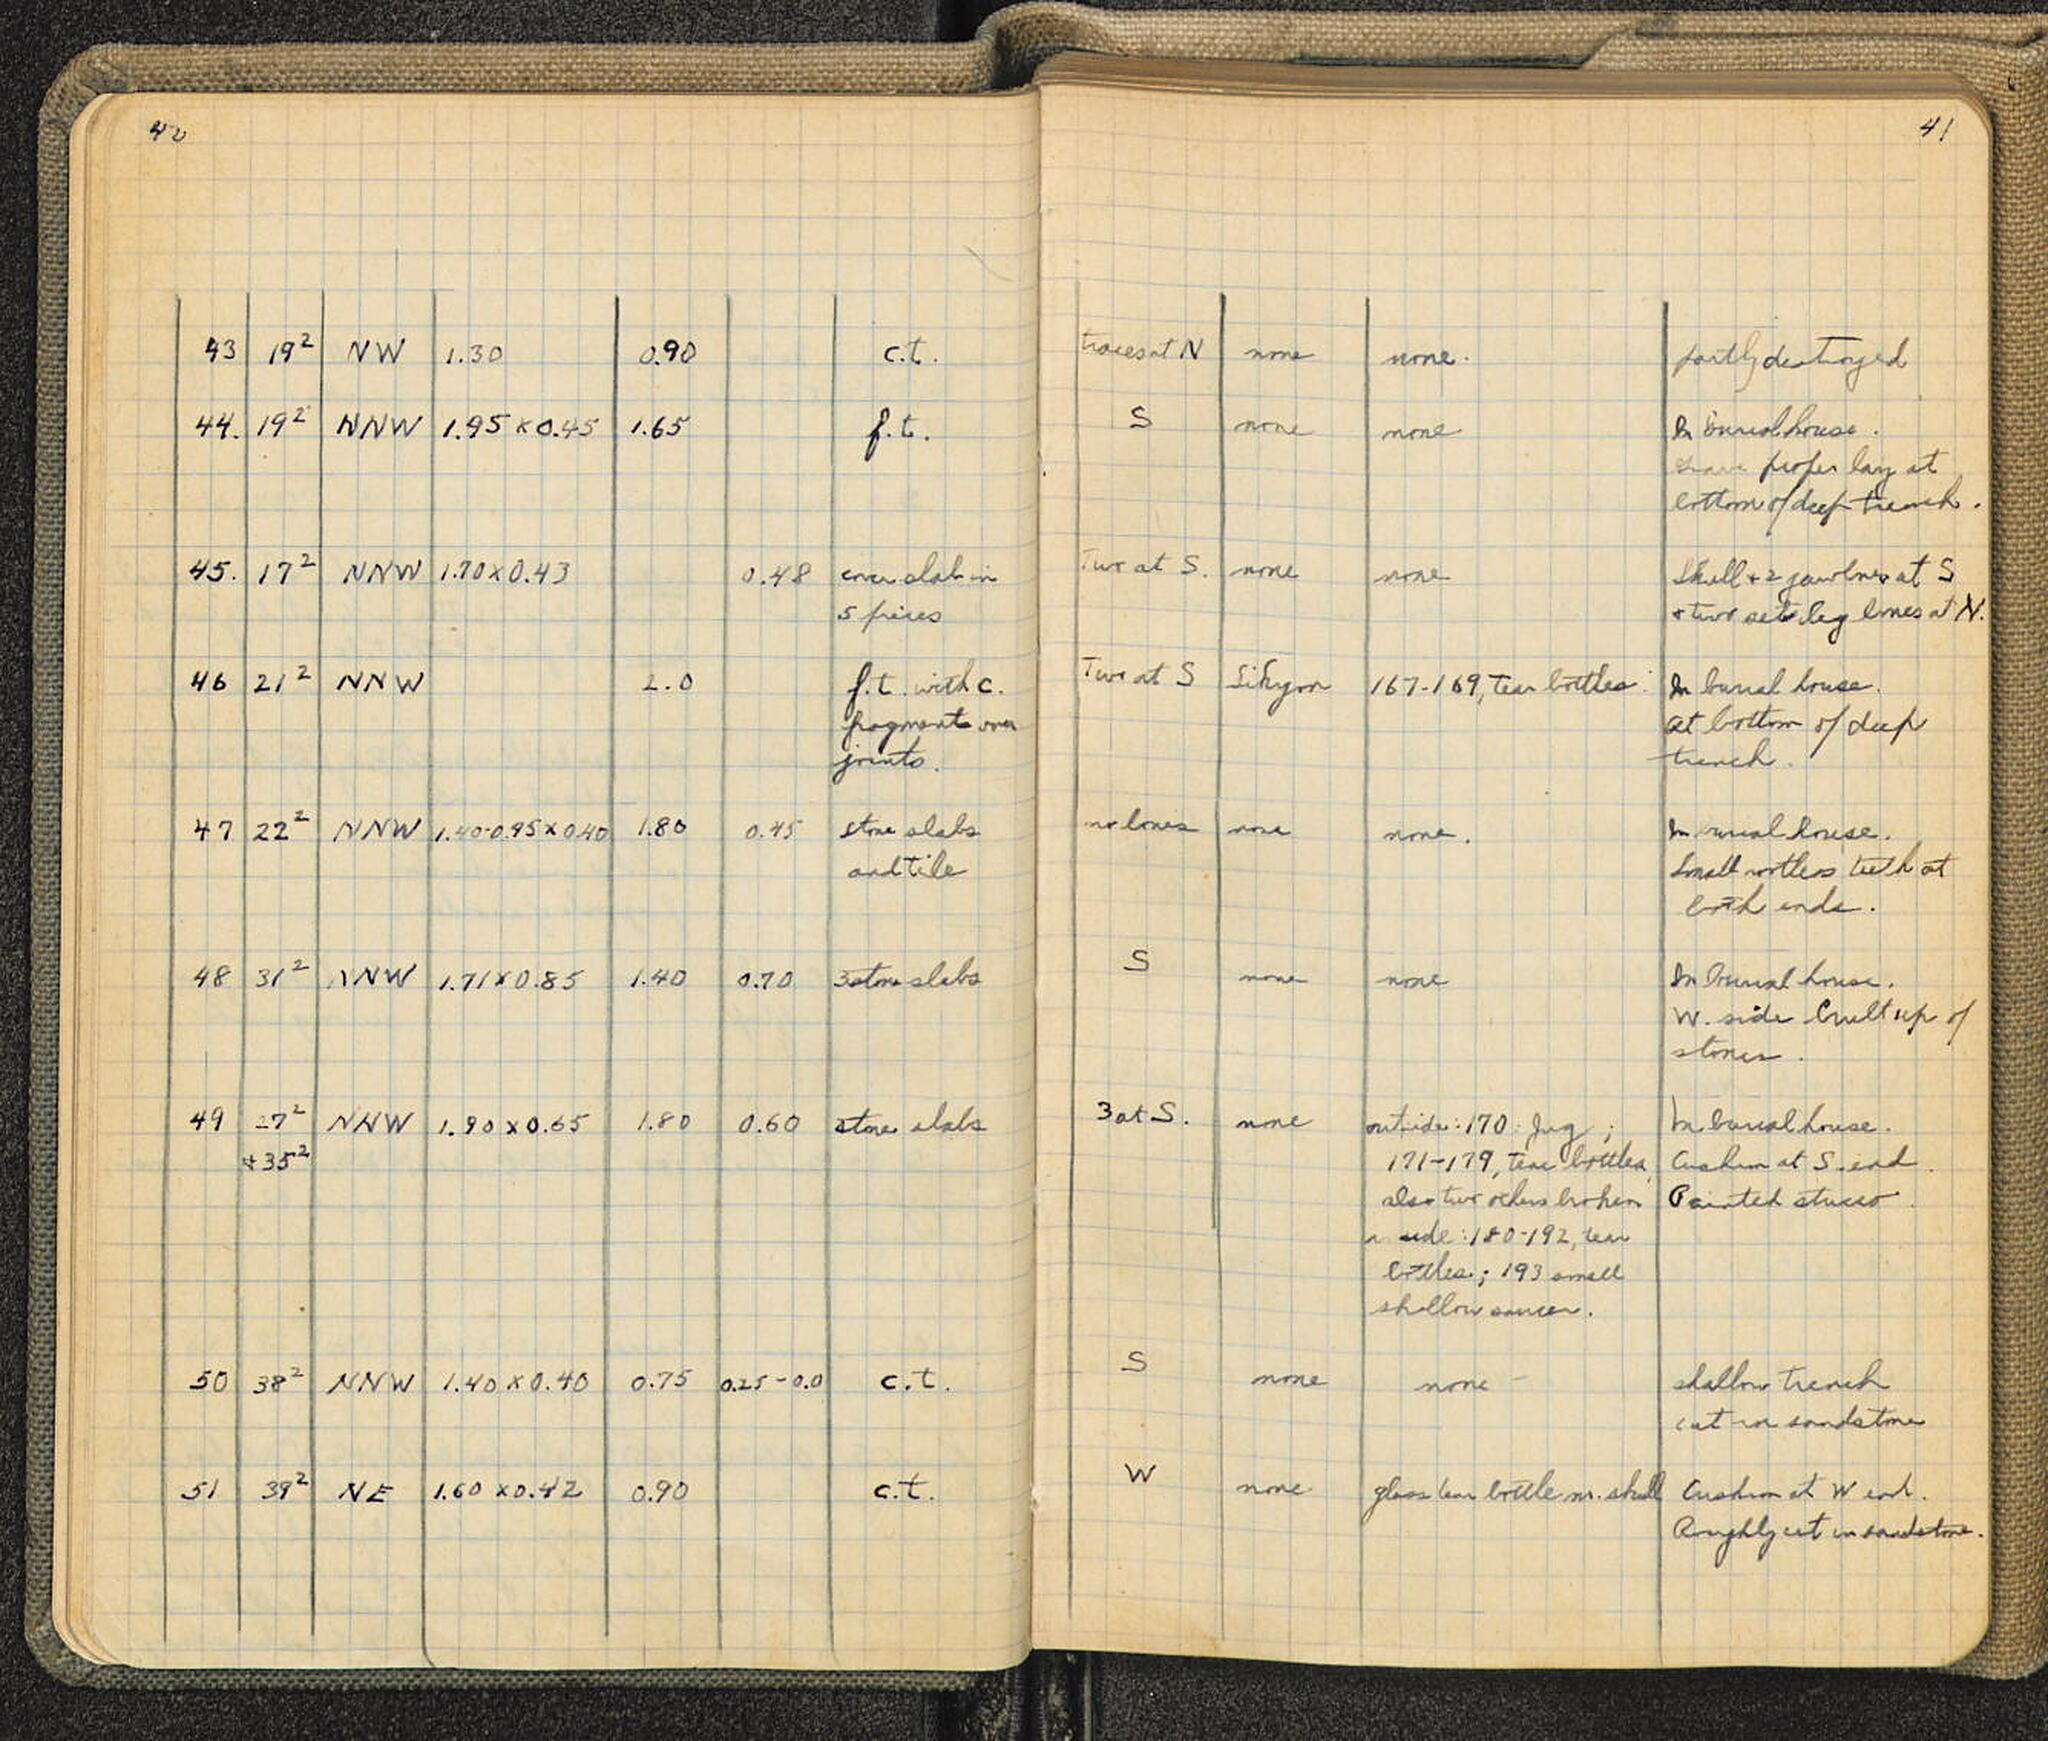 40
43 19² NW 1.30 0.90 c.t.
44. 19² NNW 1.95 x 0.45 1.65 f.t.
45. 17² NNW 1.70 x 0.43 0.48 cover slab in
5 pieces
46 21² NNW 2.0 f.t. with c.
fragments over
joints.
47 22² NNW 1.40-0.95 x 0.40 1.80 0.45 stone slabs
and tile
48 31² NNW 1.71 x 0.85 1.40 0.70 3 stone slabs
49 27² NNW 1.90 x 0.65 1.80 0.60 stone slabs
+ 35²
50 38² NNW 1.40 x 0.40 0.75 0.25-0.0 c.t.
51 39² NE 1.60 x 0.42 0.90 c.t.
41
traces at N none none. partly destroyed
S none none In burial house.
Grave proper lay at
bottom of deep trench.
Two at S. none none Skull + 2 jawbones at S
+ two sets leg bones at N.
Two at S Sikyon 167-169, tear bottles. In burial house.
at bottom of deep
trench.
no bones none none. In burial house.
Small rootless teeth at
both ends.
S none none In burial house.
W. side built up of
stones.
3 at S. none outside: 170: Jug; In burial house.
171-179, tear bottles, Cushion at S. end.
also two others broken Painted stucco.
inside: 180-192, tear
bottles; 193 small
shallow saucer.
S none none shallow trench
cut in sandstone
W none glass tear bottle nr. skull Cushion at W end.
Roughly cut in sandstone.